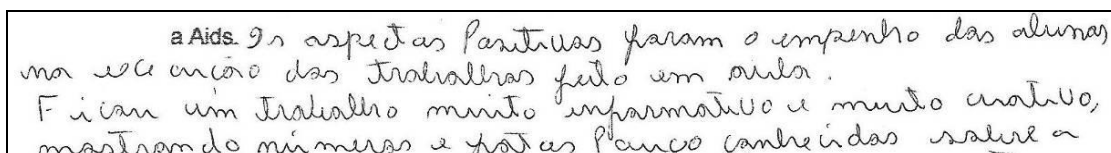 a Aids. Os aspectos Positivos foram o empenho dos alunos
na execução dos trabalhos feito em aula.
Ficou um trabalho muito informativo e muito criativo,
mostrando números e fatos Pouco conhecidos sobre a